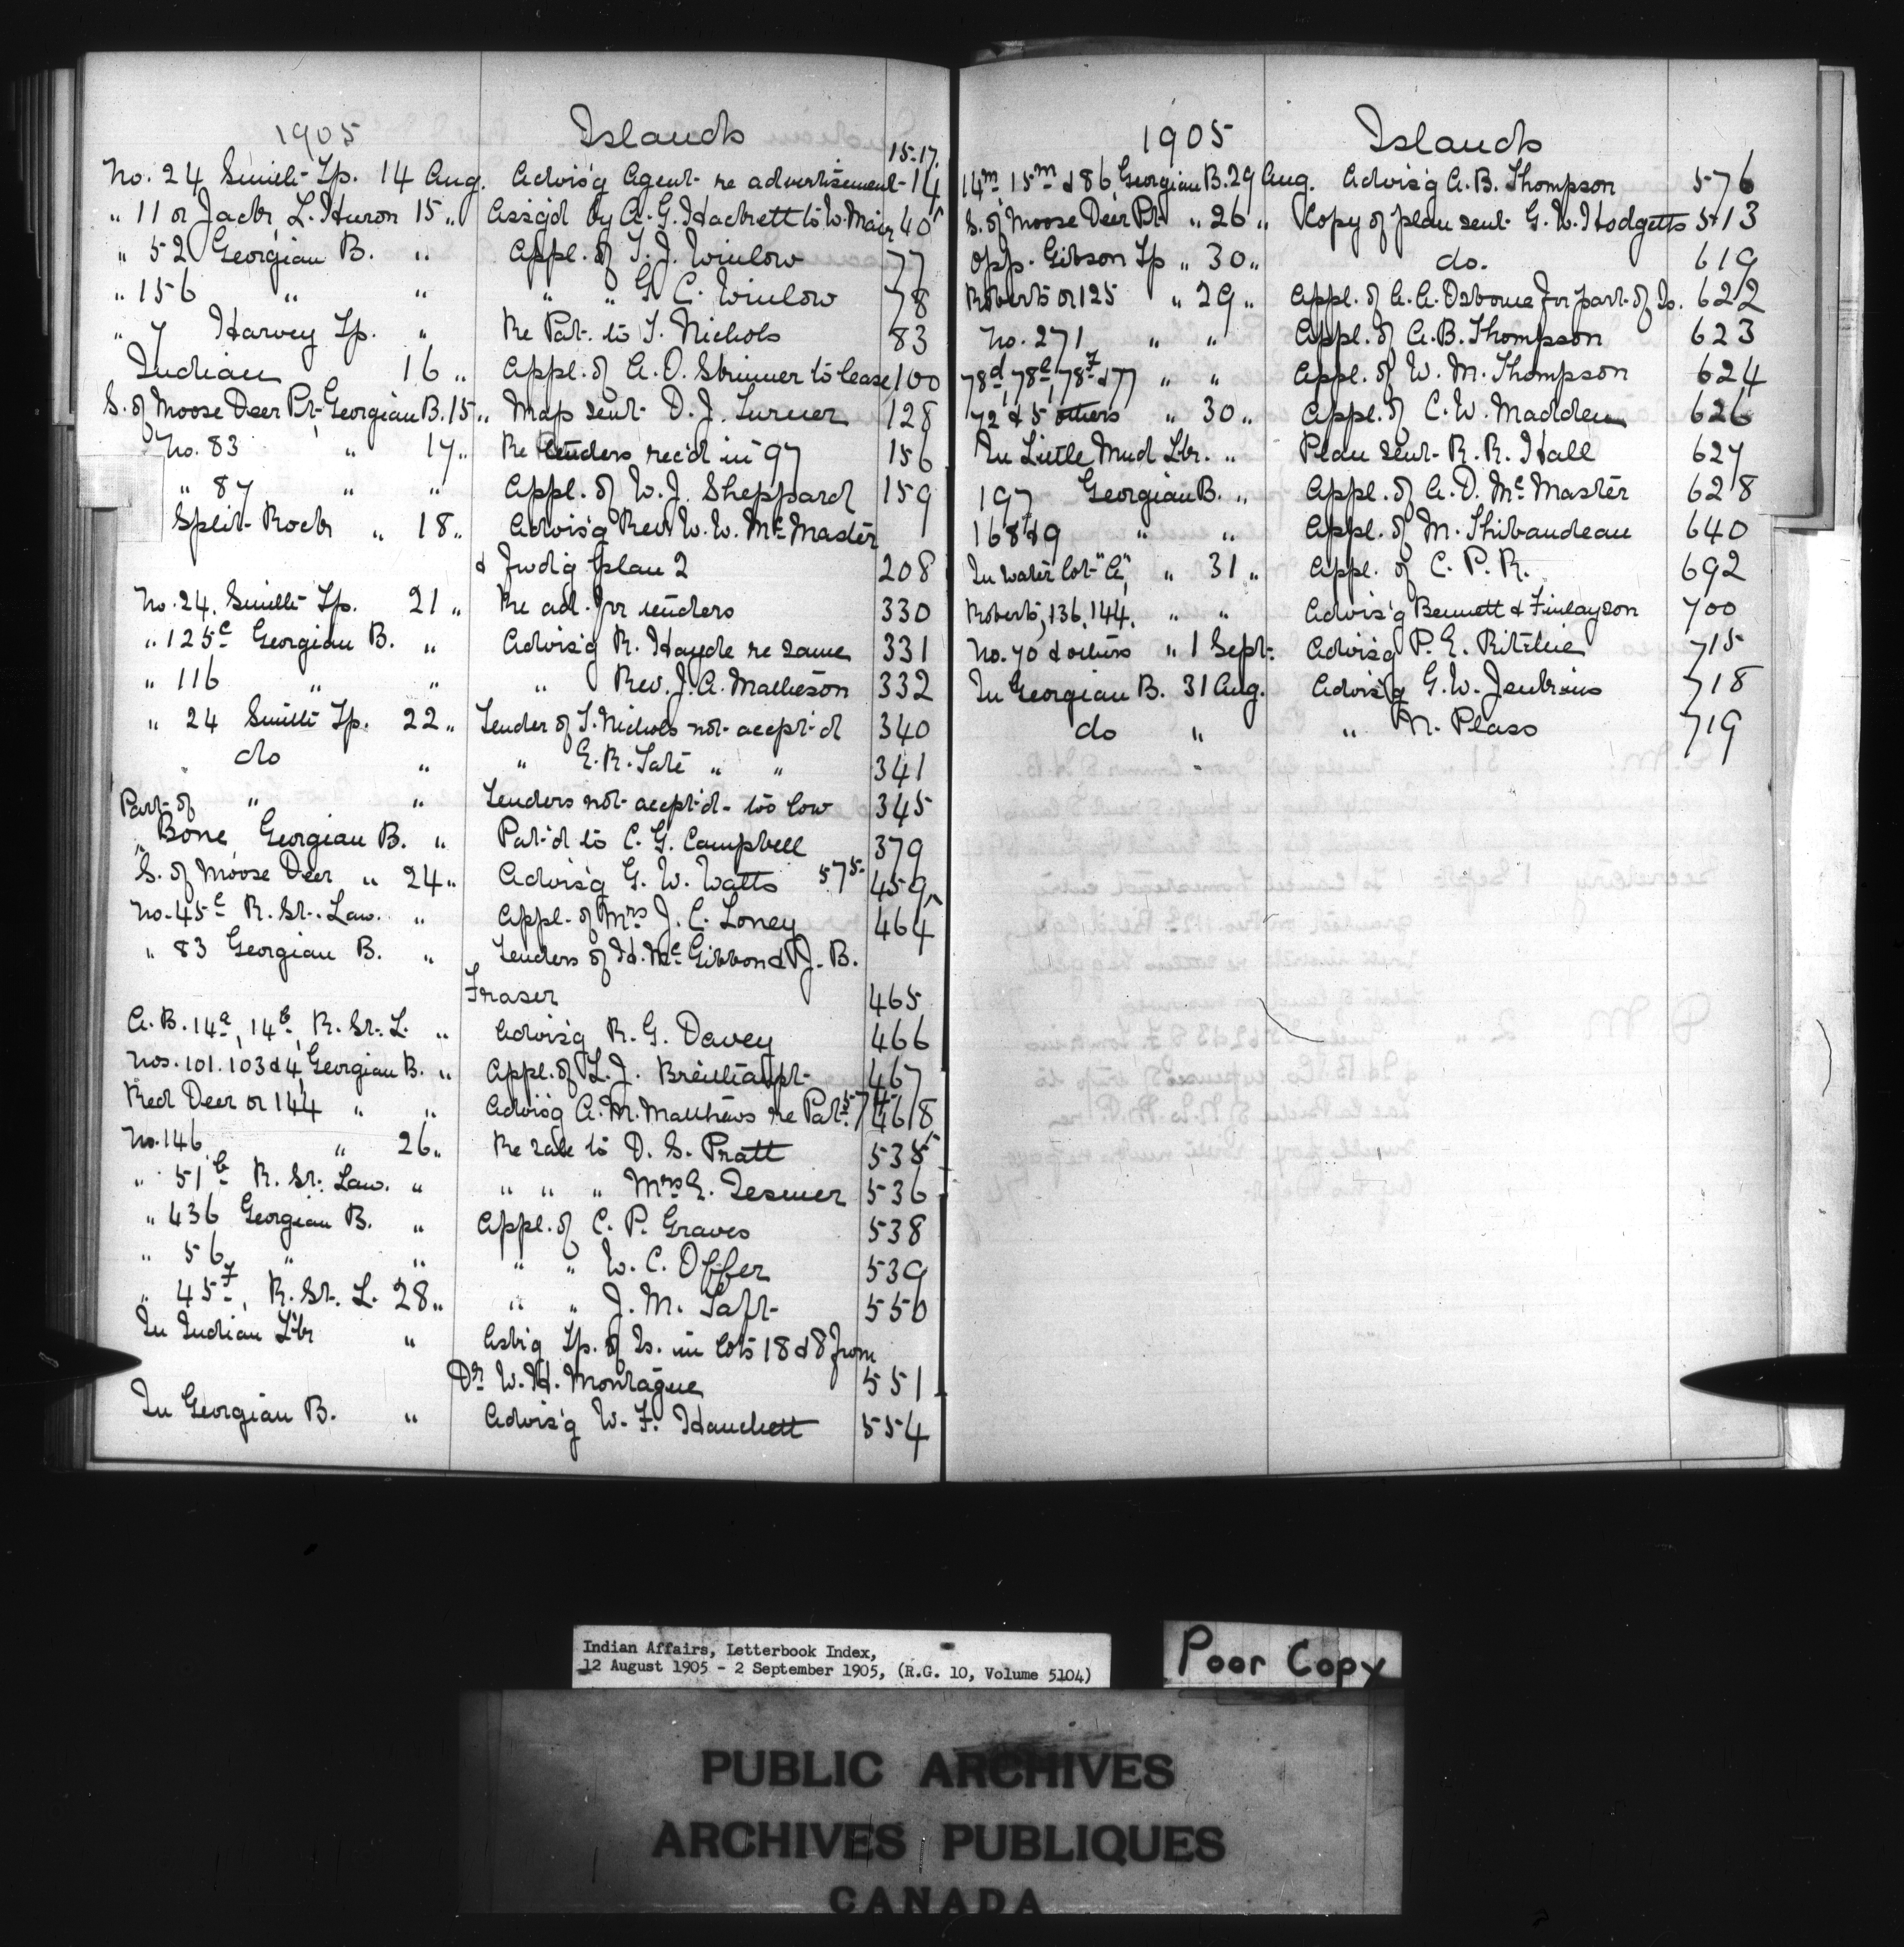 1905 Islands
15-17.
No. 24 Smith Tp. 14 Aug. Advis'g Agent re advertisement 14
" 11 or Jack, L. Huron 15 " Assg'd by A. G. Hackett to W. Mair 40
" 52 Georgian B. " Appl. of T. J. Winlow 77
" 156 " " " " G. C. Winlow 78
" 7 Harvey Tp. " Re Pat. to T. Nichols 83
Indian 16 " Appl. of A. O. Skinner to lease 100
S. of Moose Deer Pt. Georgian B. 15 " Map sent D. J. Turner 128
No. 83 " 17 " Re tenders rec'd in '97 156
" 87 " " Appl. of W. J. Sheppard 159
Split Rock " 18 " Advis'g Rev. W. W. McMaster
& Fwd'g plan 2 208
No. 24, Smith Tp. 21 " Re ad. for tenders 330
" 125c Georgian B. " Advis'g R. Hayde re same 331
" 116 " " " Rev. J. A. Matheson 332
" 24 Smith Tp. 22 " Tender of T. Nichols not accept'd 340
do " " E. R. Tate " " 341
Part of " " Tenders not accept'd - too low 345
" Bone Georgian B. " Pat'd to C. G. Campbell 379
S. of Moose Deer " 24 " Advis'g G. W. Watts 575 459
No. 45e R. St. Law. " Appl. of Mrs J. C. Loney 464
" 83 Georgian B. " Tenders of H. McGibbon & J. B.
Fraser 465
A. B. 14a, 14b, R. St. L. " Advis'g R. G. Davey 466
Nos. 101. 103 & 4, Georgian B. " Appl. of L. J. Breithaupt 467
Red Deer or 144 " " Advis'g A. M. Matthews re Pat. 574 468
No. 146 " 26 " Re sale to D. S. Pratt 535
" 51b R. St. Law. " " " " Mrs E. Tesmer 536
" 436 Georgian B. " Appl. of C. P. Graves 538
" 56 " " " " W. C. Offer 539
" 45f, R. St. L. 28 " " " J. M. Taft 550
In Indian Lk " Ask'g Tp. of Is. in lots 18 & 8 from
Dr W. H. Montague 551
In Georgian B. " Advis'g W. F. Hanchett 554
1905 Islands
14m 15m & 86 Georgian B. 29 Aug. Advis'g A. B. Thompson 576
S. of Moose Deer Pt. " 26 " Copy of plan sent G. W. Hodgetts 513
Opp. Gibson Tp " 30 " do. 619
Roberts or 125 " 29 " Appl. of A. A. Osborne for part of Is. 622
No. 271 " " Appl. of A. B. Thompson 623
78d, 78e, 78f & 77 " " Appl. of W. M. Thompson 624
72 & 5 others " 30 " Appl. of C. W. Madden 626
In Little Mud Lk. " Plan sent R. R. Hall 627
197 Georgian B. " Appl. of A. D. McMaster 628
168 & 9 " " Appl. of M. Thibaudeau 640
In water lot "A", " 31 " Appl. of C. P. R. 692
Roberts, 136, 144, " " Advis'g Bennett & Finlayson 700
No. 70 & others " 1 Sept. Advis'g P. E. Ritchie 715
In Georgian B. 31 Aug. Advis'g G. W. Jenkins 718
do " " N. Plass 719
Indian Affairs, Letterbook Index,
12 August 1905 - 2 September 1905, (R.G. 10, Volume 5104)
Poor Copy
PUBLIC ARCHIVES
ARCHIVES PUBLIQUES
CANADA